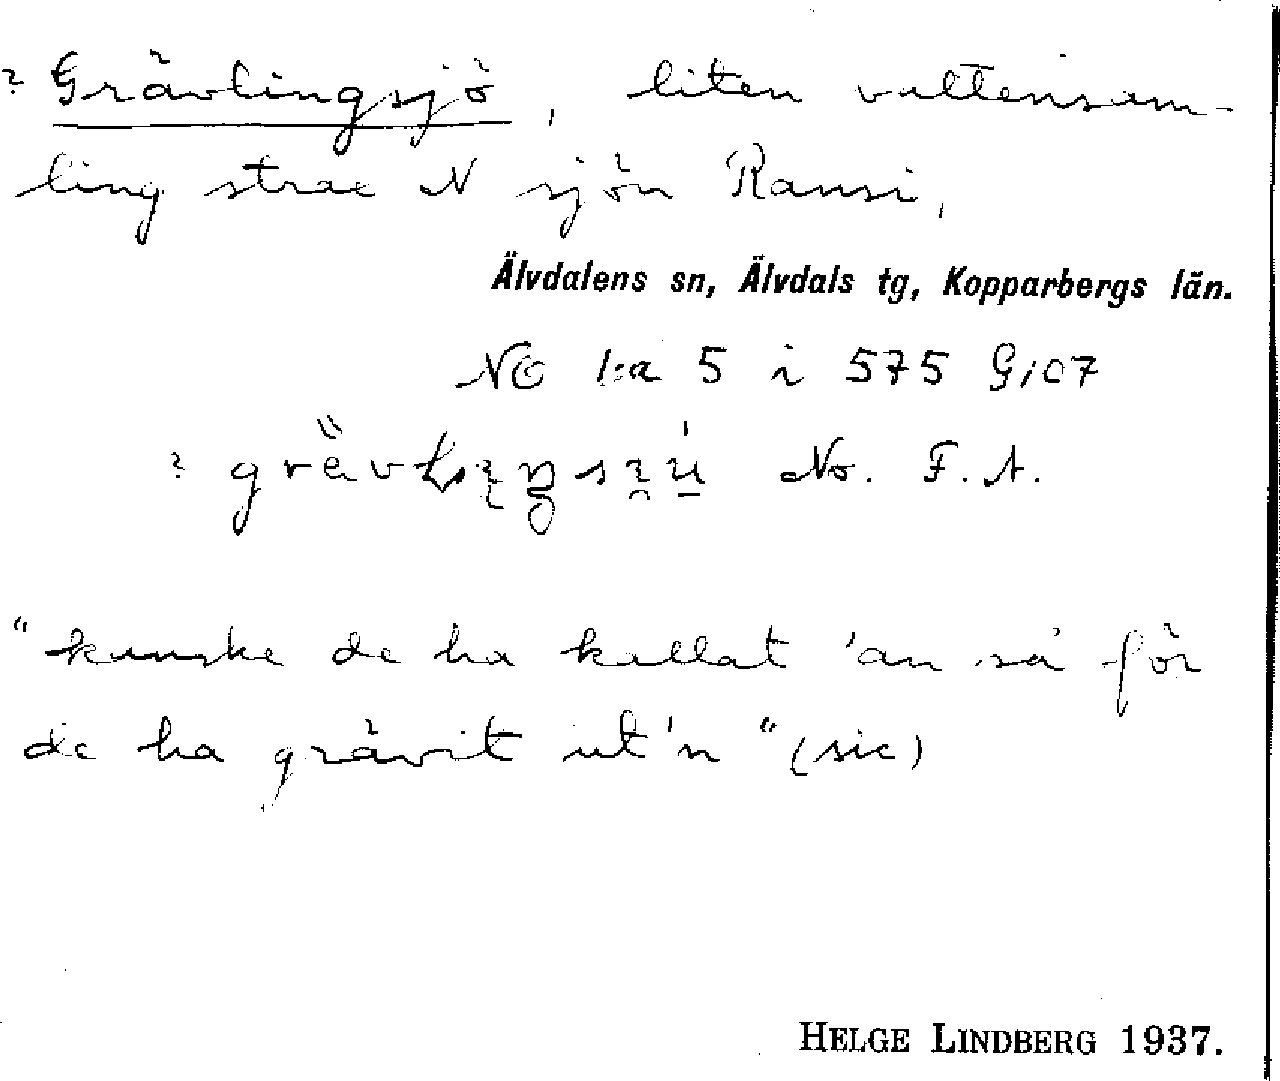 ? Grävlingsjö, liten vattensam-
ling strax N sjön Ransi,
Älvdalens sn, Älvdals tg, Kopparbergs län.
NO 1:a 5 i 575 G107
? No. F. A.
"kanske de ha kallat 'an så för
de ha grävit ut'n" (sic)
HELGE LINDBERG 1937.